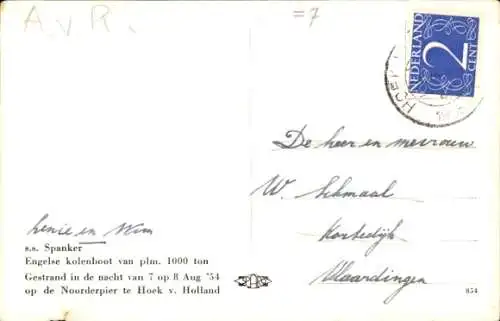 A.v.R.
=7
NEDERLAND
2
CENT
HOEK
De heer en mevrouw
W. Schmaal
Kortedijk
Vlaardingen
Lenie en Wim
s.s. Spanker
Engelse kolenboot van plm. 1000 ton
Gestrand in de nacht van 7 op 8 Aug '54
op de Noorderpier te Hoek v. Holland
854